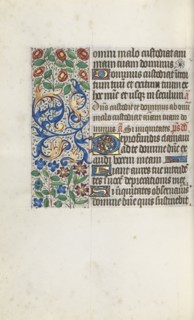 omni malo custodiat ani
mam tuam dominus
Dominus custodiat intro
itum tuum et exitum tuum ex
hoc nunc et usque in seculum
custodit te dominus ab omni
malo custodiat animam tuam do
minus Si iniquitates ps
De profundis clamaui
ad te domine domine ex
audi vocem meam
Fiant aures tue intende
tes in vocem deprecationis mee
Si iniquitates obseruaueris
domine domine quis sustinebit